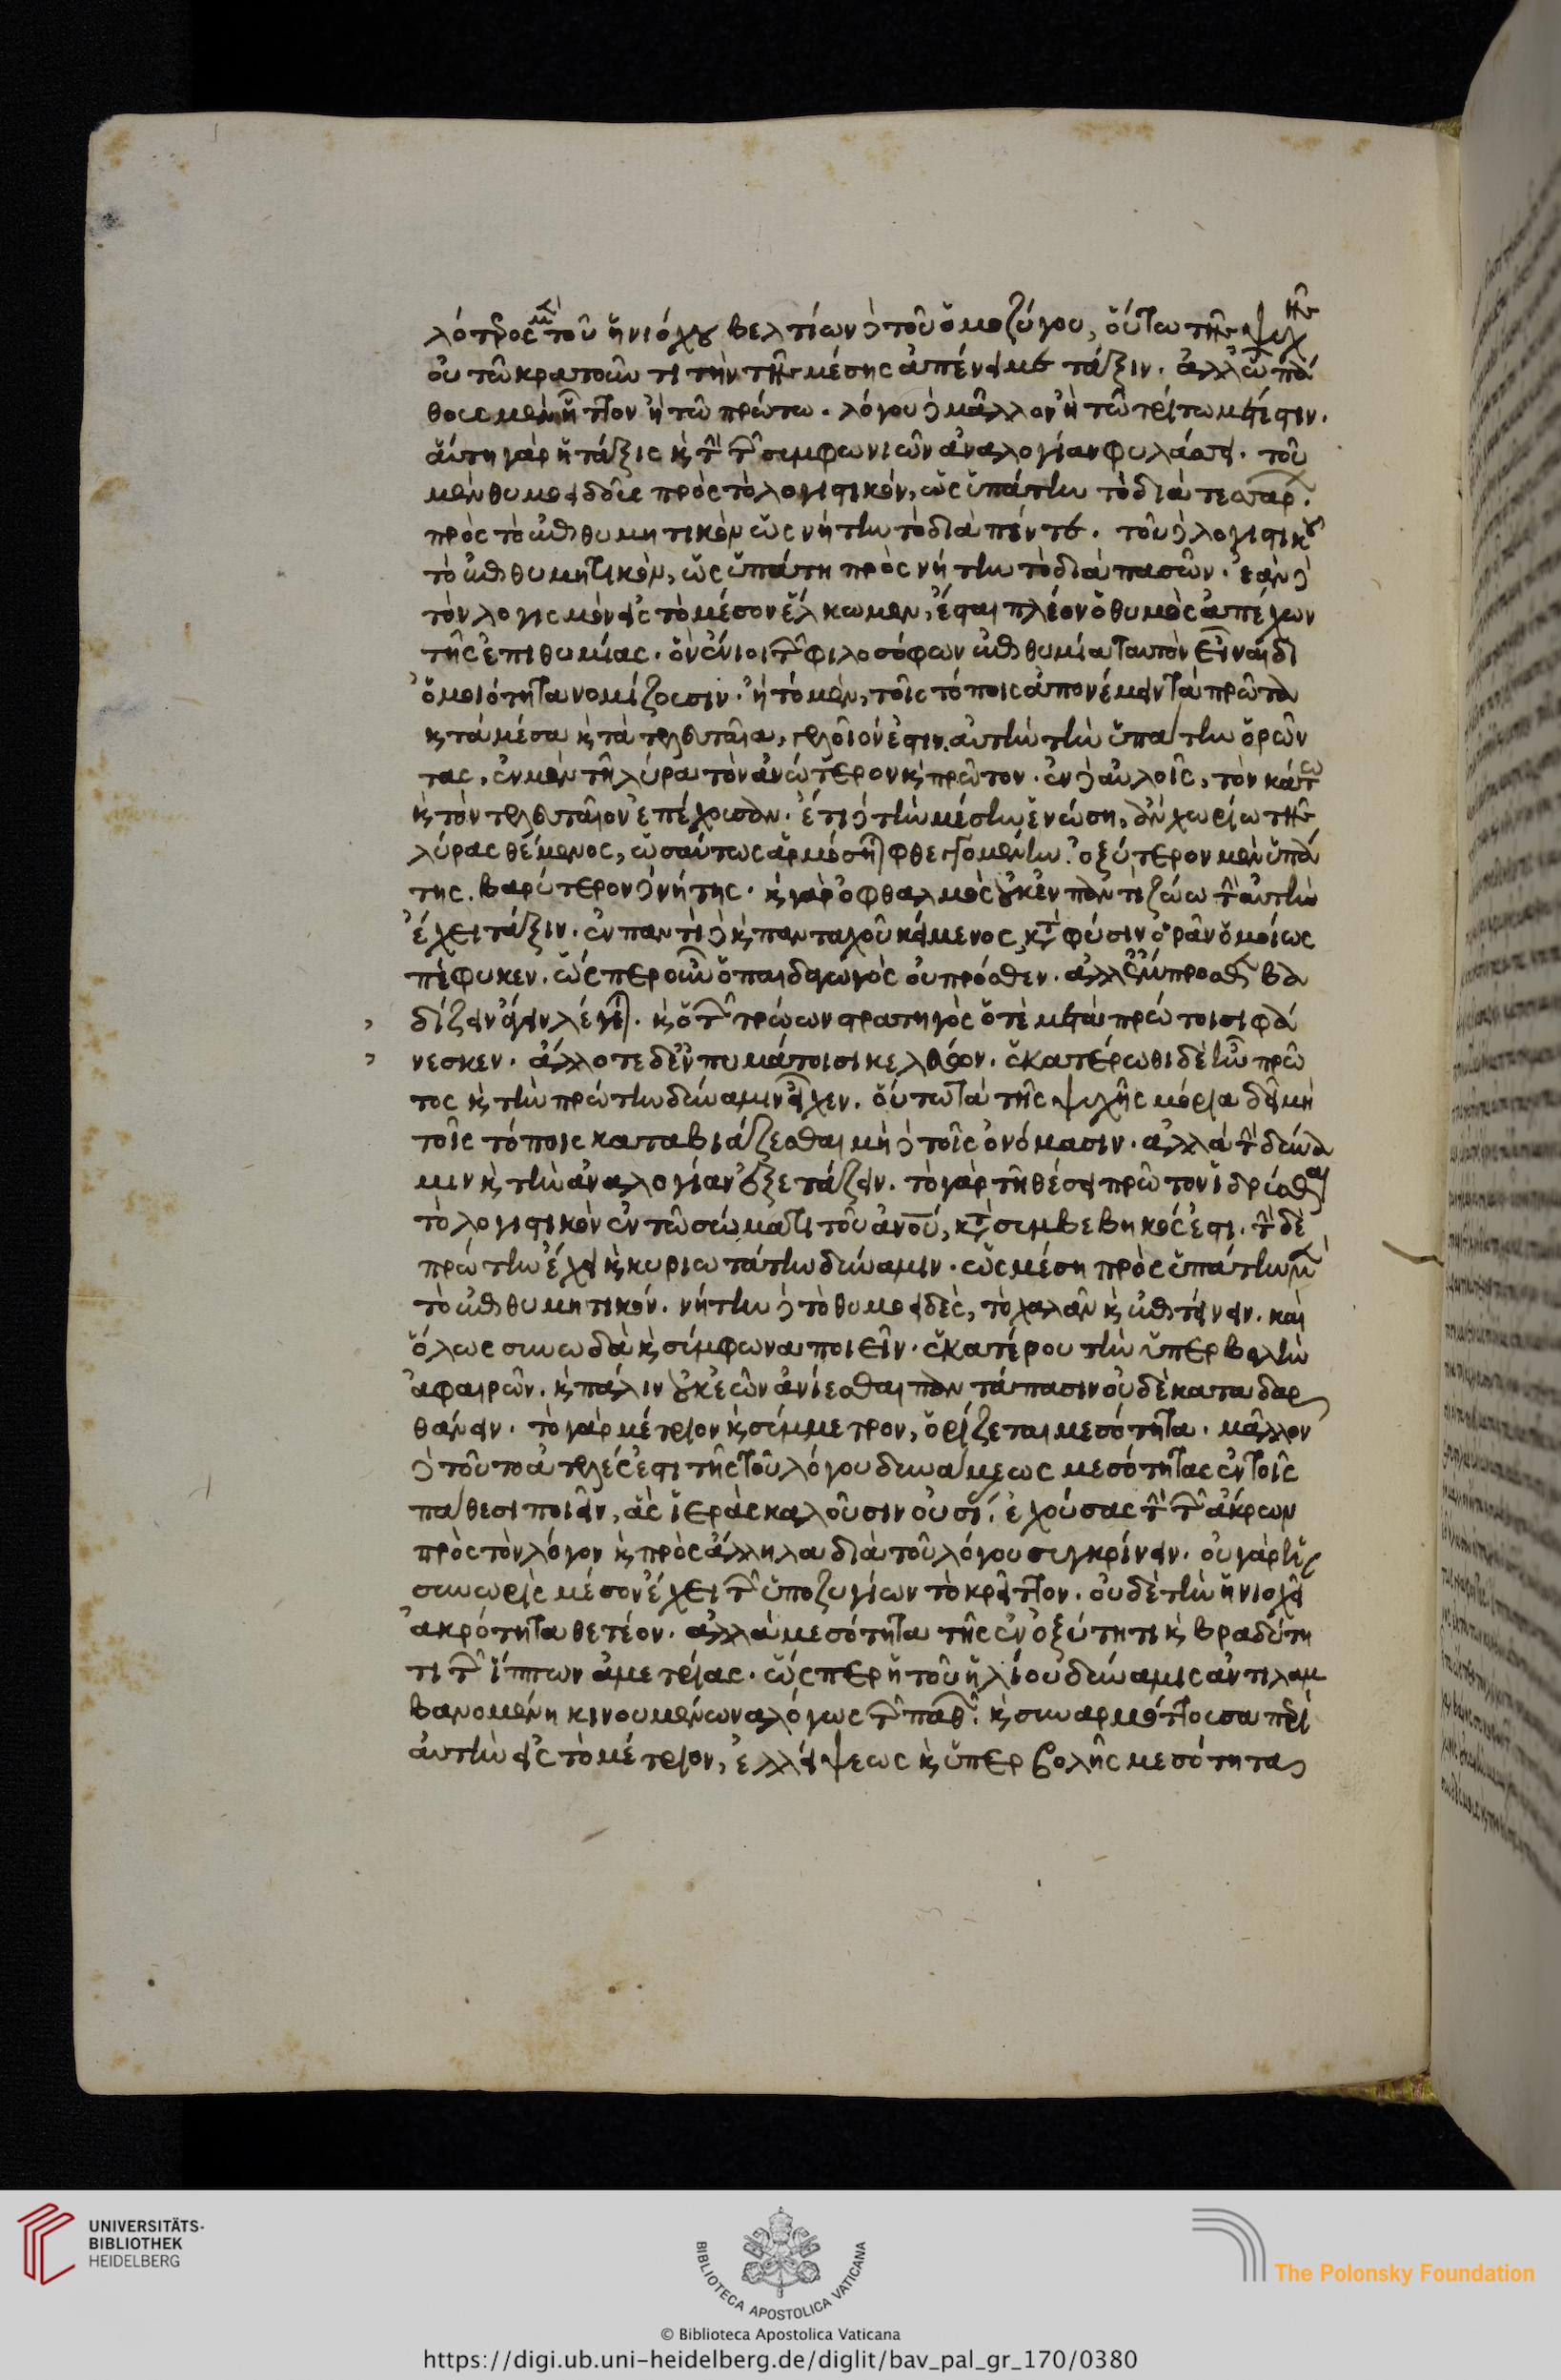 λότερος μὲν τοῦ ἡνιόχου βελτίων δὲ τοῦ ὁμοζύγου, οὕτω τῆς ψυχῆς
οὐ τῶ κρατοῦντι τὴν τῆς μέσης ἀπένειμε τάξιν. ἀλλ' ὧ πά
θους μὲν ἧττον ἢ τῶ πρώτω. λόγου δὲ μᾶλλον ἢ τῶ τρίτω μέτεστιν.
αὕτη γὰρ ἡ τάξις καὶ τὴν τῶν συμφωνιῶν ἀναλογίαν φυλάττει. τοῦ
μὲν θυμοειδοῦς πρὸς τὸ λογιστικὸν, ὡς ὑπάτην τὸ διὰ τεσσάρων.
πρὸς τὸ ἐπιθυμητικὸν ὡς νήτην τὸ διὰ πέντε. τοῦ δὲ λογιστικοῦ
τὸ ἐπιθυμητικὸν, ὡς ὑπάτη πρὸς νήτην τὸ διὰ πασῶν. ἐὰν δὲ
τὸν λογισμὸν εἰς τὸ μέσον ἕλκωμεν, ἔσται πλέον ὁ θυμὸς ἀπέχων
τῆς ἐπιθυμίας. ὃν ἔνιοι τῶν φιλοσόφων ἐπιθυμία ταυτὸν εἶναι δι
ὁμοιότητα νομίζουσιν. ἢ τὸ μὲν, τοῖς τόποις ἀπονέμειν τὰ πρῶτα
καὶ τὰ μέσα καὶ τὰ τελευταῖα, γελοῖόν ἐστιν. αὐτὴν τὴν ὑπάτην ὁρῶν
τας, ἐν μὲν τῆ λύρα τὸν ἀνώτερον καὶ πρῶτον. ἐν δὲ αὐλοῖς, τὸν κάτω
καὶ τὸν τελευταῖον ἐπέχουσαν. ἔτι δὲ τὴν μέσην ἐν ὧ ση, ἂν χωρίω τῆς
λύρας θέμενος, ὡσαύτως ἁρμόσηται φθεγγομένην. ὀξύτερον μὲν ὑπά
της. βαρύτερον δὲ νήτης. καὶ γὰρ ὀφθαλμὸς οὐκ ἐν παντὶ ζώω τὴν αὐτὴν
ἔχει τάξιν. ἐν παντὶ δὲ καὶ πανταχοῦ κείμενος κατὰ φύσιν ὁρᾶν ὁμοίως
πέφυκεν. ὥσπερ οὖν ὁ παιδαγωγὸς οὐ πρόσθεν. ἀλλ' ἔμπροσθεν βα
δίζειν ἄγειν λέγεται. καὶ ὁ τῶν τρώων στρατηγὸς ὁτὲ μετὰ πρώτοισι φά
νεσκεν. ἄλλοτε δ' ἐν πυμάτοισι κελεύων. ἑκατέρωθι δὲ ἦν πρῶ
τος καὶ τὴν πρώτην δύναμιν εἶχεν. οὕτω τὰ τῆς ψυχῆς μόρια δεῖ μὴ
τοῖς τόποις καταβιάζεσθαι μὴ δὲ τοῖς ὀνόμασιν. ἀλλὰ τὴν δύνα
μιν καὶ τὴν ἀναλογίαν ἐξετάζειν. τὸ γὰρ τῆ θέσει πρῶτον ἱδρύσθαι
τὸ λογιστικὸν ἐν τῶ σώματι τοῦ ἀνου, κατὰ συμβεβηκός ἐστι. τὴν δὲ
πρώτην ἔχει καὶ κυριωτάτην δύναμιν. ὡς μέση πρὸς ὑπάτην μὲν
τὸ ἐπιθυμητικόν. νήτην δὲ τὸ θυμοειδὲς, τὸ χαλᾶν καὶ ἐπιτείνειν. καὶ
ὅλως συνωδὰ καὶ σύμφωνα ποιεῖν. ἑκατέρου τὴν ὑπερβολὴν
ἀφαιρῶν. καὶ πάλιν οὐκ ἐῶν ἀνίεσθαι παντάπασιν οὐδὲ καταδαρ
θάνειν. τὸ γὰρ μέτριον καὶ σύμμετρον, ὁρίζεται μεσότητα. μᾶλλον
δὲ τοῦτο ἀτελές ἐστι τῆς τοῦ λόγου δυνάμεως μεσότητας ἐν τοῖς
πάθεσι ποιεῖν, ἃς ἱερὰς καλοῦσιν οὐσί. ἐχούσας τὴν τῶν ἄκρων
πρὸς τὸν λόγον καὶ πρὸς ἄλληλα διὰ τοῦ λόγου συγκρίνειν. οὐ γὰρ ἡ
συνωρὶς μέσον ἔχει τῶν ὑποζυγίων τὸ κρεῖττον. οὐδὲ τὴν ἡνιοχεί
ἀκρότητα θετέον. ἀλλὰ μεσότητα τῆς ἐν ὀξύτητι καὶ βραδύτη
τι τῶν ἵππων ἀμετρίας. ὥσπερ ἡ τοῦ ἡλίου δύναμις ἀντιλαμ
βανομένη κινουμένων ἀλόγως τῶν παθῶν. καὶ συναρμόττουσα περὶ
αὐτὴν εἰς τὸ μέτριον, ἐλλείψεως καὶ ὑπερβολῆς μεσότητα
UNIVERSITÄTS-
BIBLIOTHEK
HEIDELBERG
BIBLIOTECA APOSTOLICA VATICANA
The Polonsky Foundation
© Biblioteca Apostolica Vaticana
https://digi.ub.uni-heidelberg.de/diglit/bav_pal_gr_170/0380